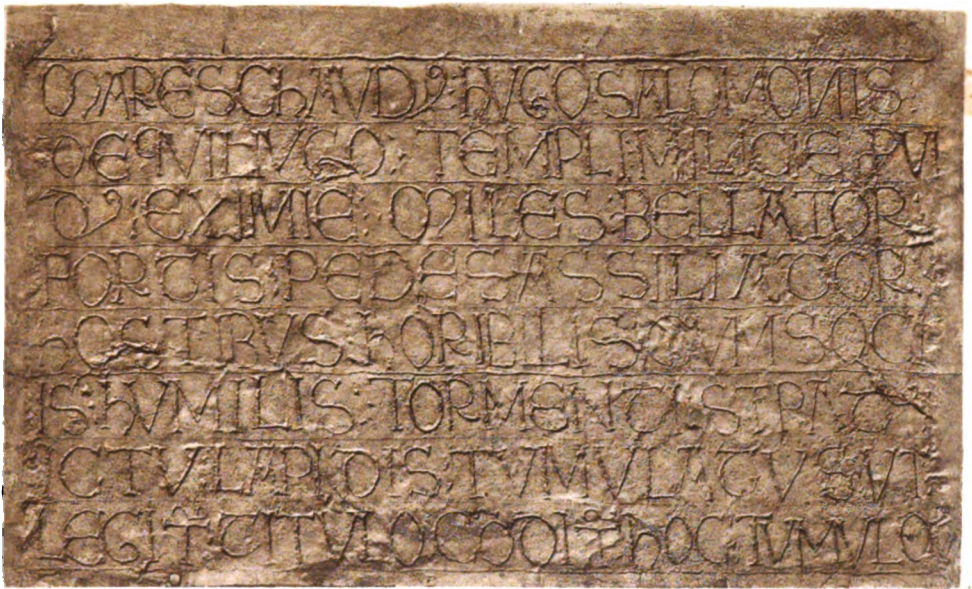 MARESCHAUDꝰ: hUGO: SALOMONIS:
DE QUILIUGO: TEMPLI MILICIE PUI
Dꝰ: EXIMIE: MILES: BELLATOR:
FORTIS: PEDES: ASSILIATOR
hOSTIBUS: hORIBILIS: CUM SOCI
IS: hUMILIS: TORMENTI
ICTU LAPIDIS: TUMULATUS UT
LEGIT: TITULO hOC TUMULO